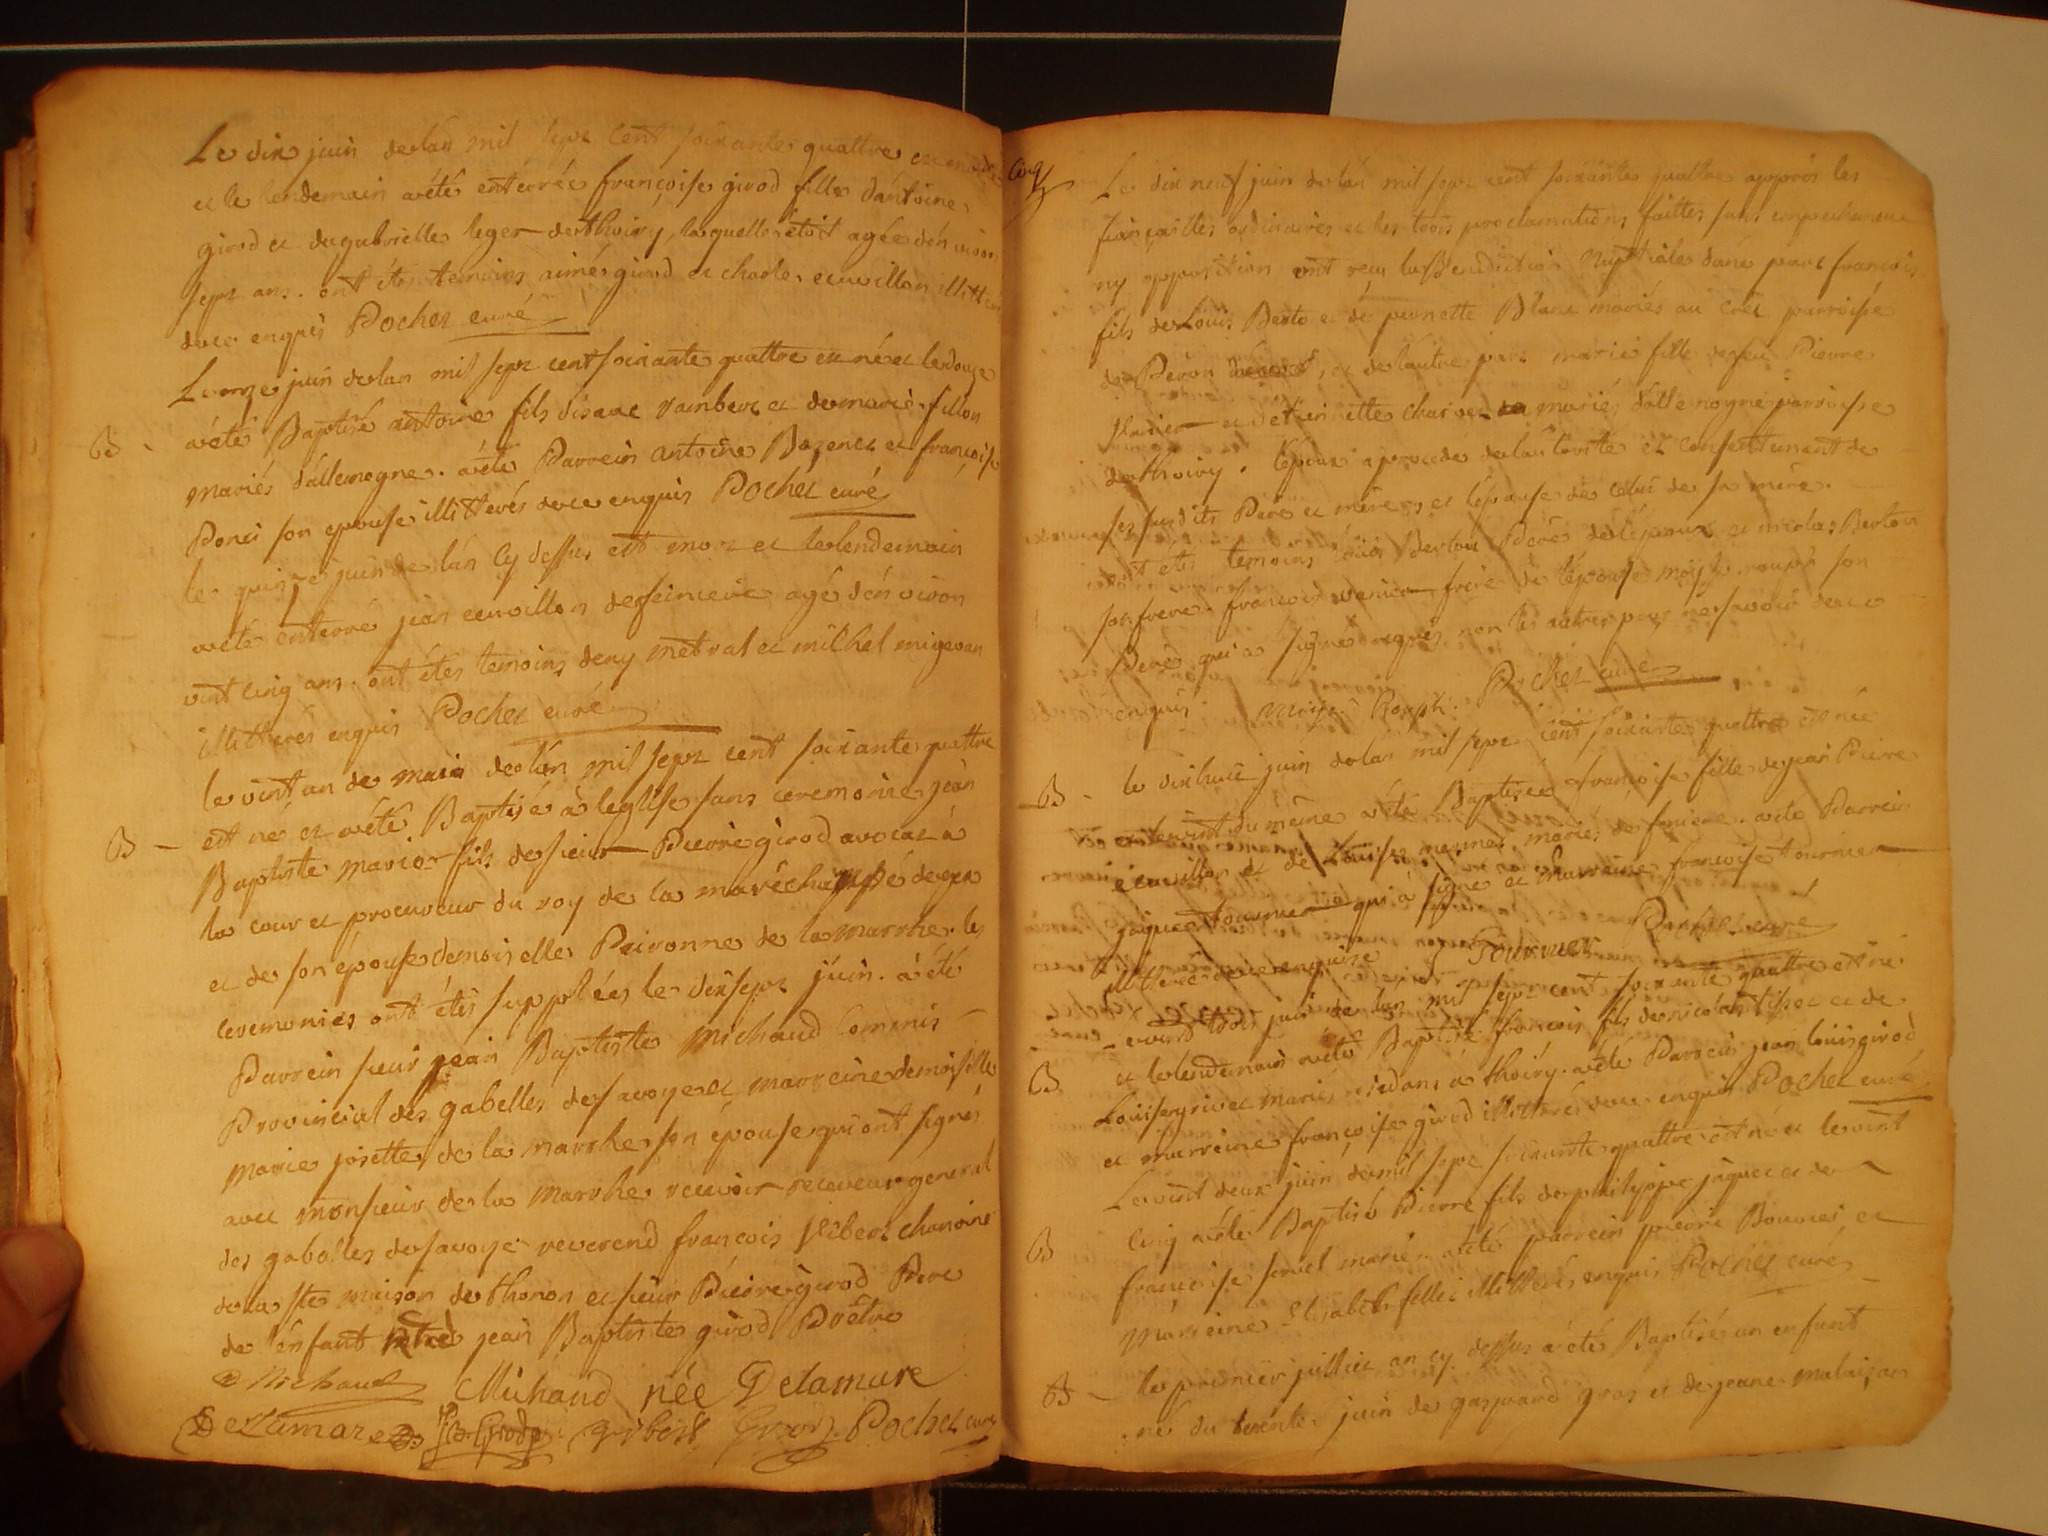 Le dix juin de lan mil sept cent soixante quattre est
et le lendemain a été enterrée françoise girod fille dántoine
girod et de gabrielle leger de thoiry, laquelle étoit agée dén viron
sept ans. ont étés temoins aimé girod et charle ecuvillon illitt
de ce enquis Pochet curé
Le onze juin de lan mil sept cent soixante quattre est né et le douze
B - a été Baptisé antoine fils disaac rambert et de marie fillon
mariés dállemogne. a été Parrein antoine Bazenet et françoise
Ponci son epouse illitterés de ce enquis Pochet curé
le quinze juin de lán cy dessus est mort et le lendemain
a été enterré jean ecuvillon de feiniere agé dén viron
vint cinq ans. ont étés temoins deny métral et michel
illitterés enquis Pochet curé
le vint un de mais de lán mil sept cent soixante quattre
B - est né et a été Baptisé à léglise sans ceremonie jean
Baptiste marie fils de sieur Pierre girod avocat à
la cour et procureur du roy de la maréchaussé de gex
et de son épouse demoiselle Peironne de la marche. les
ceremonies ont étés supplées le dix sept juin. a été
Parrein sieur jean Baptiste Michaud Commis
Provincial des gabelles de savoye et marreine demoiselle
marie josette de la marche son épouse qui ont signés
avec monsieur de la marche receveur general
des gabelles de savoye reverend françois gibert chanoine
de la ste maison de thonon et sieur Pierre girod Pere
de lénfant jean Baptiste girod Prêtre
Michaud Michaud née Delamare
Delamare Girod gibert Girod Pochet curé
Le dix neuf juin de lán mil sept cent soixante quattre apprès les
fiançailles ordinaires et les trois proclamations faittes sans empechement
ny opposition ont reçu la Bénédiction Nuptiale dúne part françois
fils de Louis Berto et de pernette Blanc mariés au crêt parroise
de Péron, et de láutre part marie fille de feu Pierre
et de mariés dállemogne parroise
de thoiry. lépoux a procedé de láutorité et consentement de
ses susdits Pere et mere et lépouse de celui de sa mère.
ont étés temoins Louis Berton Pere de lépoux et nicolas Berton
son frere françois frère de lépouse son
Pere qui a signé requis non les autres pour ne savoir de ce
enquis Pochet curé
B - le dix huit juin de lan mil sept cent soixante quattre est née
et le vint du même a été Baptisée françoise fille de jean Pierre
ecuvillon et de Louise mariés de feniere. a été Parrein
jaque tournier qui a signé et marreine françoise tournier
illitterée de ce enquise Tournier Pochet curé
le vint trois juin de lan mil sept cent soixante quattre est né
B et le lendemain a été Baptisé françois fils de nicolas tissot et de
Louise mariés residans a thoiry. a été Parrein jean louis girod
et marreine françoise girod illitterés de ce enquis Pochet curé
Le vint deux juin de mil sept soixante quattre est né et le vint
B cinq a été Baptisé Pierre fils de philippe jaquet et de
françoise mariés a été parrein pierre et
marreine Elisabeth illitterés enquis Pochet curé
B - le premier juillet an cy dessus a été Baptisé un enfant
né du trente juin de gaspard gros et de jeane